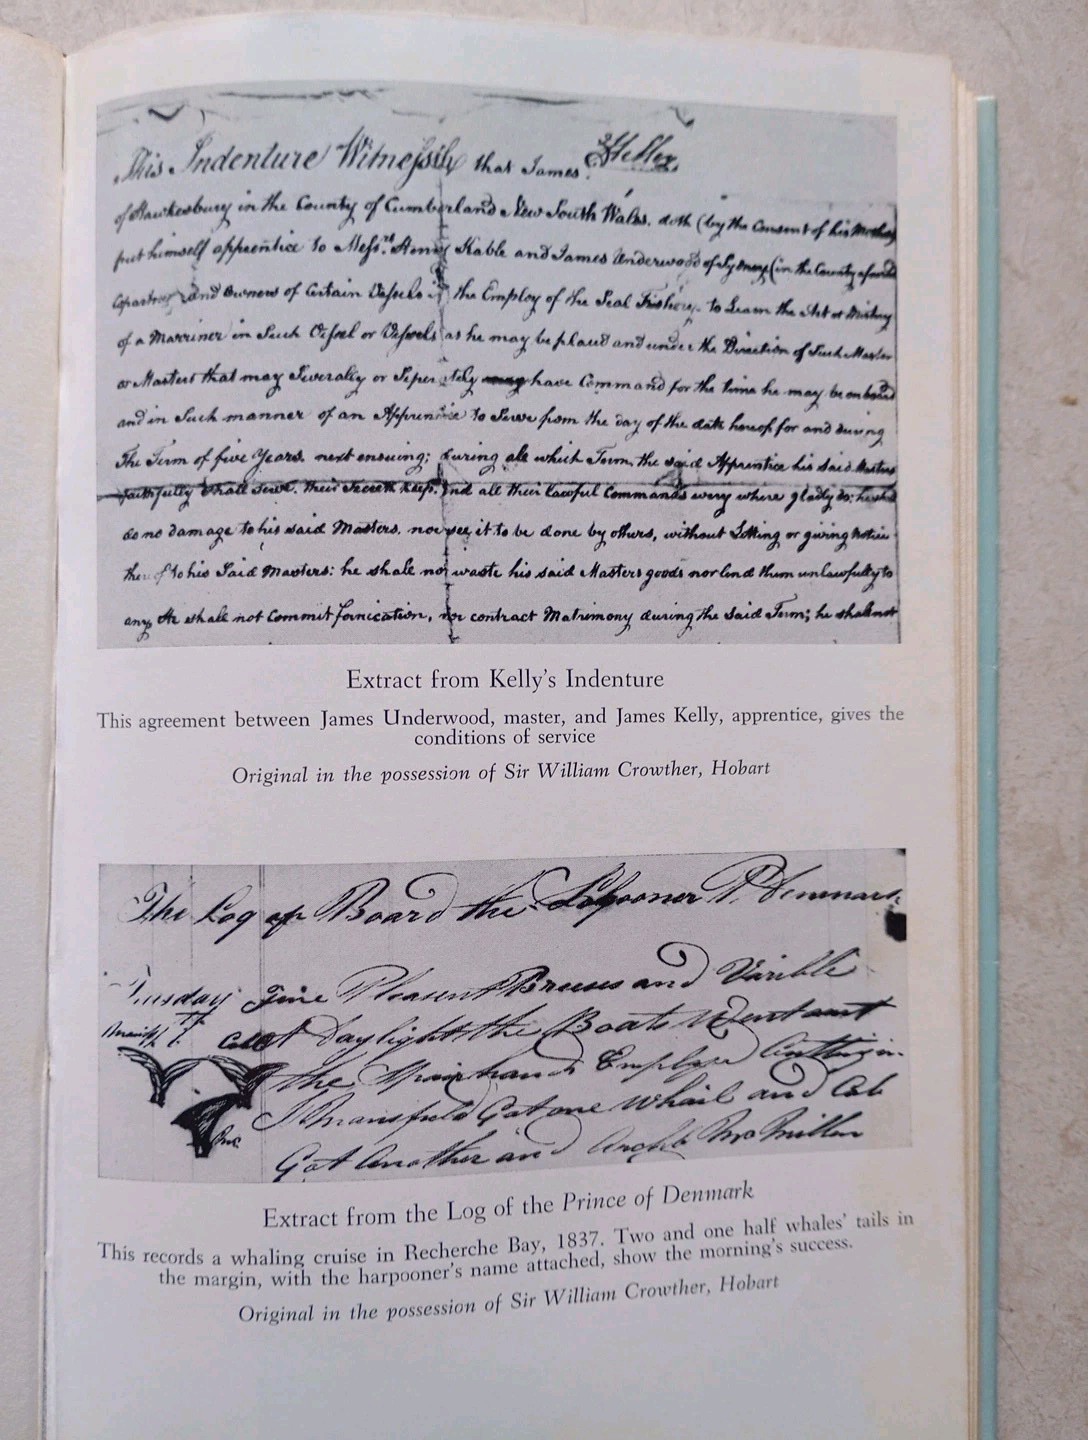 This Indenture Witnesseth that James Kelly,
of Hawkesbury in the County of Cumberland New South Wales. doth (by the Consent of his Mother
put himself apprentice to Messrs. Henry Kable and James Underwood of Sydney (in the County aforesd
and owners of Certain Vessels in the Employ of the Seal Fishery, to Learn the Art or Mistery
of a Marriner in Such Vessel or Vessels as he may be placed and under the Direction of Such Master
or Masters that may Severally or Seperately have Command for the time he may be on board
and in Such manner of an Apprentice to Serve from the day of the date hereof for and during
The Term of five Years. next ensuing; during all which Term, the said Apprentice his said Masters
faithfully Shall serve. Their Secrets keep. And all their lawful Commands every where gladly do: he shall
do no damage to his said Masters. nor see it to be done by others, without Letting or giving Notice
thereof to his Said Masters: he shall not waste his said Masters goods nor lend them unlawfully to
any He shall not Commit fornication, nor contract Matrimony during the Said Term; he shall not
Extract from Kelly's Indenture
This agreement between James Underwood, master, and James Kelly, apprentice, gives the
conditions of service
Original in the possession of Sir William Crowther, Hobart
The Log on Board the P. Denmark
Tuesday Fine Pleasent Breeses and Varible
at Daylight the Boats Went out
the Employd Cutting in
Mansfield Got one Whail and
Got Another and Archd. McMillan
Extract from the Log of the Prince of Denmark
This records a whaling cruise in Recherche Bay, 1837. Two and one half whales' tails in
the margin, with the harpooner's name attached, show the morning's success.
Original in the possession of Sir William Crowther, Hobart